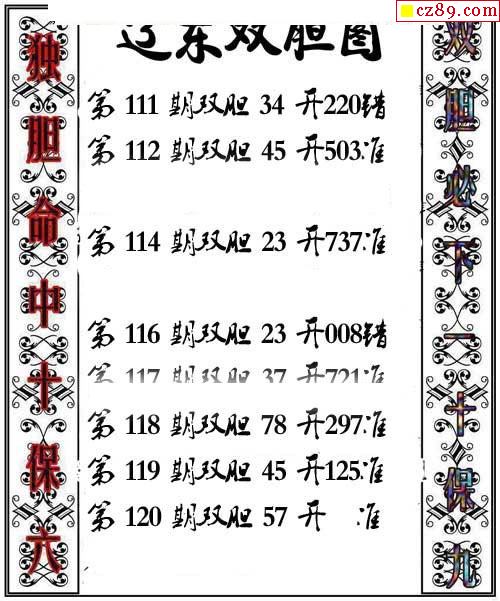 cz89.com
辽东双胆图
独胆命中十保六
双胆必下一十保九
第 111 期双胆 34 开220错
第 112 期双胆 45 开503准
第 114 期双胆 23 开737准
第 116 期双胆 23 开008错
第 117 期双胆 37 开721准
第 118 期双胆 78 开297准
第 119 期双胆 45 开125准
第 120 期双胆 57 开 准